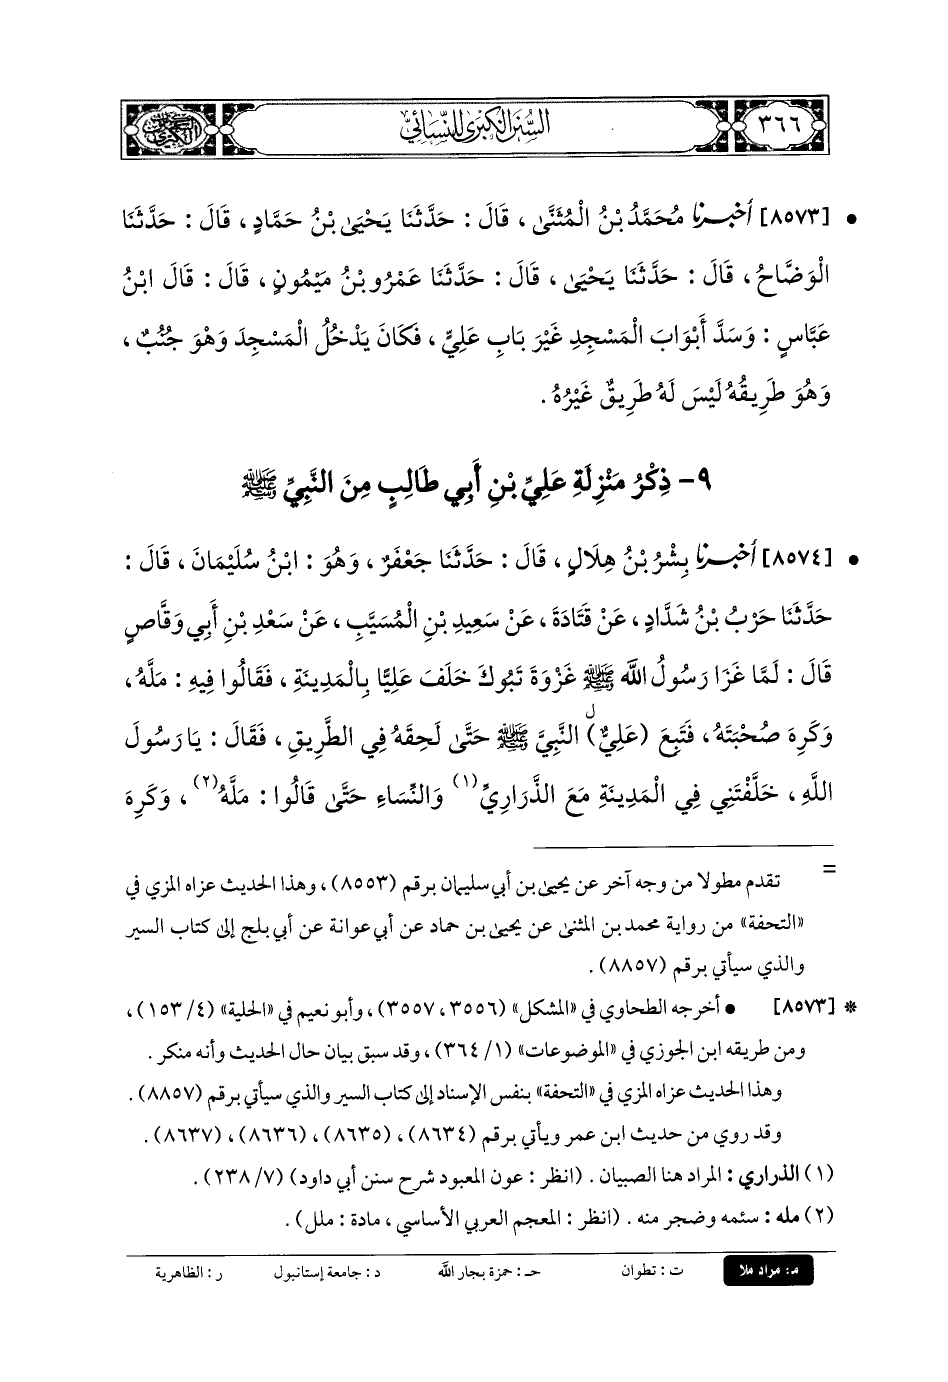 ٣٦٦
السُّنَنُ الكبرى للنسائي
• [٨٥٧٣] أخبرنا مُحَمَّدُ بْنُ الْمُثَنَّىٰ ، قَالَ : حَدَّثَنَا يَحْيَىٰ بْنُ حَمَّادٍ ، قَالَ : حَدَّثَنَا
الْوَضَّاحُ ، قَالَ : حَدَّثَنَا يَحْيَىٰ ، قَالَ : حَدَّثَنَا عَمْرُو بْنُ مَيْمُونٍ ، قَالَ : قَالَ ابْنُ
عَبَّاسٍ : وَسَدَّ أَبْوَابَ الْمَسْجِدِ غَيْرَ بَابِ عَلِيٍّ ، فَكَانَ يَدْخُلُ الْمَسْجِدَ وَهْوَ جُنُبٌ ،
وَهُوَ طَرِيقُهُ لَيْسَ لَهُ طَرِيقٌ غَيْرُهُ .
٩- ذِكْرُ مَنْزِلَةِ عَلِيِّ بْنِ أَبِي طَالِبٍ مِنَ النَّبِيِّ ﷺ
• [٨٥٧٤] أخبرنا بِشْرُ بْنُ هِلَالٍ ، قَالَ : حَدَّثَنَا جَعْفَرٌ ، وَهُوَ : ابْنُ سُلَيْمَانَ ، قَالَ :
حَدَّثَنَا حَرْبُ بْنُ شَدَّادٍ ، عَنْ قَتَادَةَ ، عَنْ سَعِيدِ بْنِ الْمُسَيَّبِ ، عَنْ سَعْدِ بْنِ أَبِي وَقَّاصٍ
قَالَ : لَمَّا غَزَا رَسُولُ اللَّه ﷺ غَزْوَةَ تَبُوكَ خَلَفَ عَلِيًّا بِالْمَدِينَةِ ، فَقَالُوا فِيهِ : مَلَّهُ ،
وَكَرِهَ صُحْبَتَهُ ، فَتَبِعَ (عَلِيٌّ) ل النَّبِيَّ ﷺ حَتَّى لَحِقَهُ فِي الطَّرِيقِ ، فَقَالَ : يَا رَسُولَ
اللَّهِ ، خَلَّفْتَنِي فِي الْمَدِينَةِ مَعَ الذَّرَارِيِّ (١) وَالنِّسَاءِ حَتَّى قَالُوا : مَلَّهُ (٢) ، وَكَرِهَ
= تقدم مطولا من وجه آخر عن يحيى بن أبي سليمان برقم (٨٥٥٣) ، وهذا الحديث عزاه المزي في
«التحفة» من رواية محمد بن المثنى عن يحيى بن حماد عن أبي عوانة عن أبي بلج إلى كتاب السير
والذي سيأتي برقم (٨٨٥٧) .
* [٨٥٧٣] • أخرجه الطحاوي في «المشكل» (٣٥٥٦، ٣٥٥٧) ، وأبو نعيم في «الحلية» (٤/ ١٥٣) ،
ومن طريقه ابن الجوزي في «الموضوعات» (١/ ٣٦٤) ، وقد سبق بيان حال الحديث وأنه منكر .
وهذا الحديث عزاه المزي في «التحفة» بنفس الإسناد إلى كتاب السير والذي سيأتي برقم (٨٨٥٧) .
وقد روي من حديث ابن عمر ويأتي برقم (٨٦٣٤) ، (٨٦٣٥) ، (٨٦٣٦) ، (٨٦٣٧) .
(١) الذراري : المراد هنا الصبيان . (انظر : عون المعبود شرح سنن أبي داود) (٧/ ٢٣٨) .
(٢) مله : سئمه وضجر منه . (انظر : المعجم العربي الأساسي ، مادة : ملل) .
م: مراد ملا ت : تطوان حـ : حمزة بجار الله د : جامعة إستانبول ر : الظاهرية